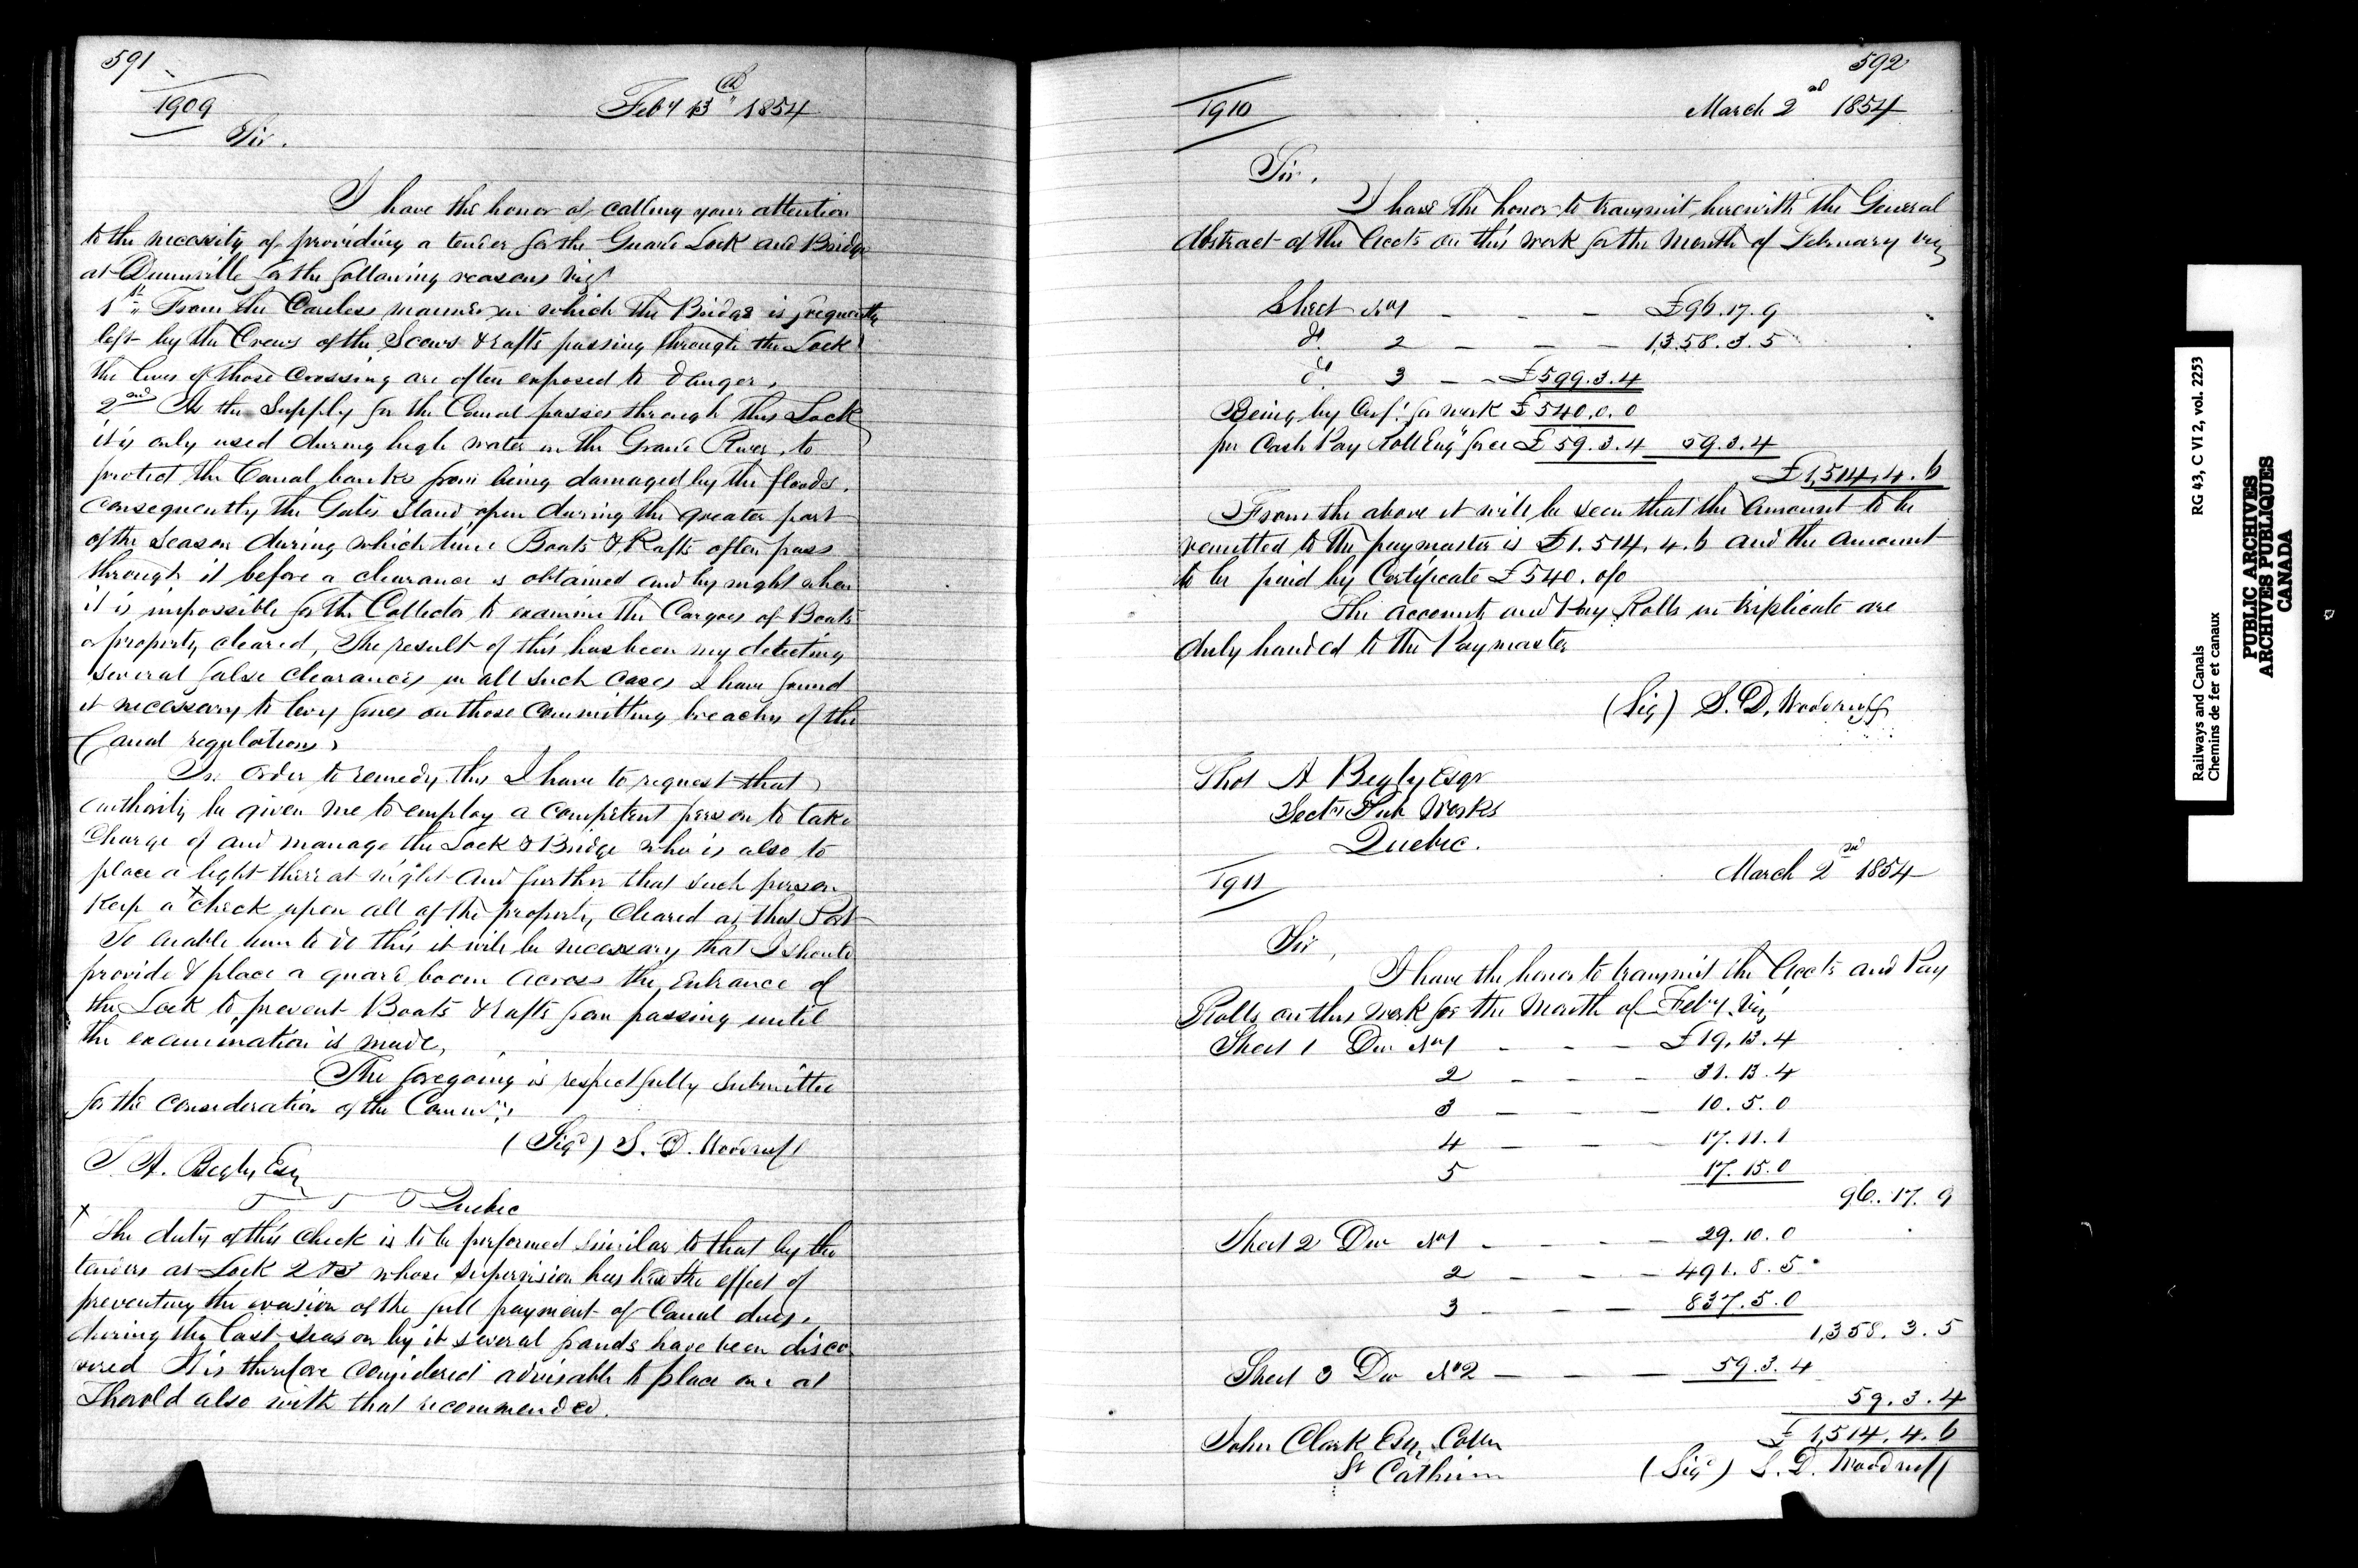 591
1909
Feby 13th 1854
Sir.
I have the honor of calling your attention
to the necessity of providing a tender for the Guard Lock and Bridge
at Dunnville for the following reasons viz
1st From the Careless manner in which the Bridge is frequently
left by the Crews of the Scows & rafts passing through the Lock
the lives of those Crossing are often exposed to danger.
2nd As the Supply for the Canal passes through this Lock
it is only used during high water in the Grand River, to
protect the Canal banks from being damaged by the floods.
Consequently the Gates Stand open during the greater part
of the Season during which time Boats & Rafts often pass
through it before a clearance is obtained and by night when
it is impossible for the Collector to examine the Cargoes of Boats
or property cleared, The result of this has been my detecting
several false clearances in all such cases I have found
it necessary to levy fines on those committing breaches of the
Canal regulations
In order to remedy this I have to request that
authority be given me to employ a competent person to take
Charge of and manage the Lock & Bridge who is also to
place a light there at night and further that such person
keep a x check upon all of the property Cleared at that Port
To enable him to do this it will be necessary that I should
provide & place a guard boom across the Entrance of
the Lock to prevent Boats & rafts from passing until
the examination is made,
The foregoing is respectfully Submitted
for the consideration of the Commrs
(Sigd) S. D. Woodruff
T. A. Begly Esq
Quebec
x The duty of this Check is to be performed similar to that by the
tenders at Lock 2 & 3 whose supervision has had the effect of
preventing the evasion of the full payment of Canal dues,
during the last season by it several frauds have been disco-
vered It is therefore considered advisable to place one at
Thorold also with that recommended.
592
1910
March 2nd 1854
Sir,
I have the honor to transmit herewith the General
Abstract of the Accts on this work for the Month of February viz
Sheet No 1 - - - £96.17.9
do 2 - - - 1,358.3.5
do 3 - - £599.3.4
Being by Cerf. for work £540.0.0
per Cash Pay Roll Eng force £59.3.4 59.3.4
£1,514.4.6
From the above it will be seen that the Amount to be
remitted to the paymaster is £1.514.4.6 and the Amount
to be paid by Certificate £540.0/0
The accounts and Pay Rolls in triplicate are
duly handed to the Paymaster
(Sig) S. D. Woodruff
Thos A Begly Esqr
Secty Pub Works
Quebec.
1911
March 2nd 1854
Sir,
I have the honor to transmit the Accts and Pay
Rolls on this work for the Month of Feby. viz
Sheet 1 Div No 1 - - - £19.13.4
2 - - - 31.13.4
3 - - 10.5.0
4 - - 17.11.1
5 17.15.0
96.17.9
Sheet 2 Div No 1 - - - 29.10.0
2 - - - 491.8.5
3 - - - 837.5.0
1,358.3.5
Sheet 3 Div No 2 - - - 59.3.4
59.3.4
£1,514.4.6
John Clark Esq, Collr
St Catherin
(Sigd) S. D. Woodruff
RG 43, C VI 2, vol. 2253
Railways and Canals
Chemins de fer et canaux
PUBLIC ARCHIVES
ARCHIVES PUBLIQUES
CANADA